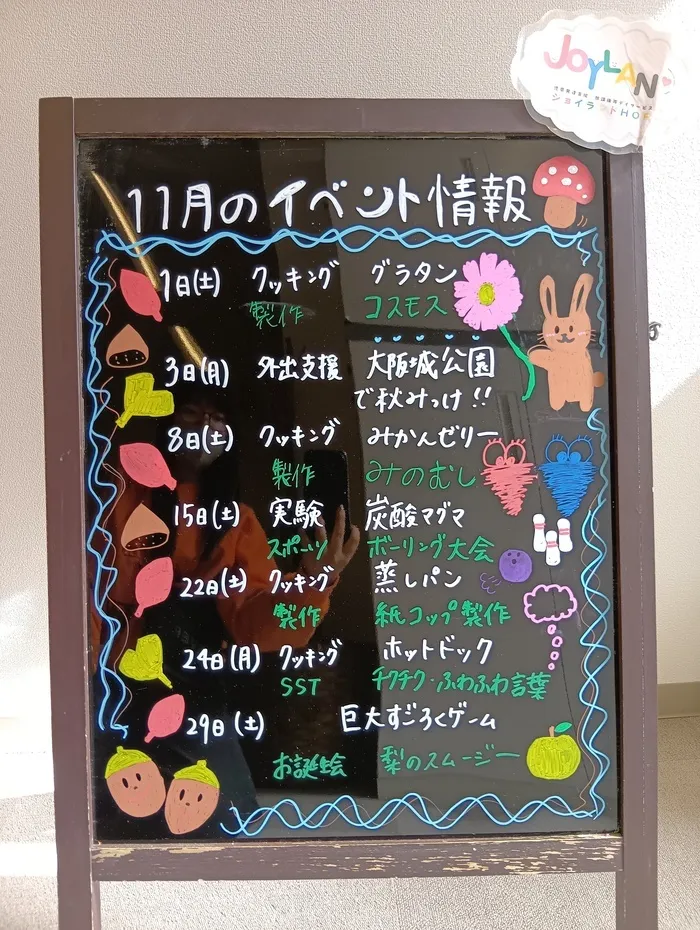 JOYLAND
ジョイランドHOP
11月のイベント情報
1日(土) クッキング グラタン
製作 コスモス
3日(月) 外出支援 大阪城公園
で秋みっけ!!
8日(土) クッキング みかんゼリー
製作 みのむし
15日(土) 実験 炭酸マグマ
スポーツ ボーリング大会
22日(土) クッキング 蒸しパン
製作 紙コップ製作
24日(月) クッキング ホットドック
SST チクチク・ふわふわ言葉
29日(土) 巨大すごろくゲーム
お誕生会 梨のスムージー